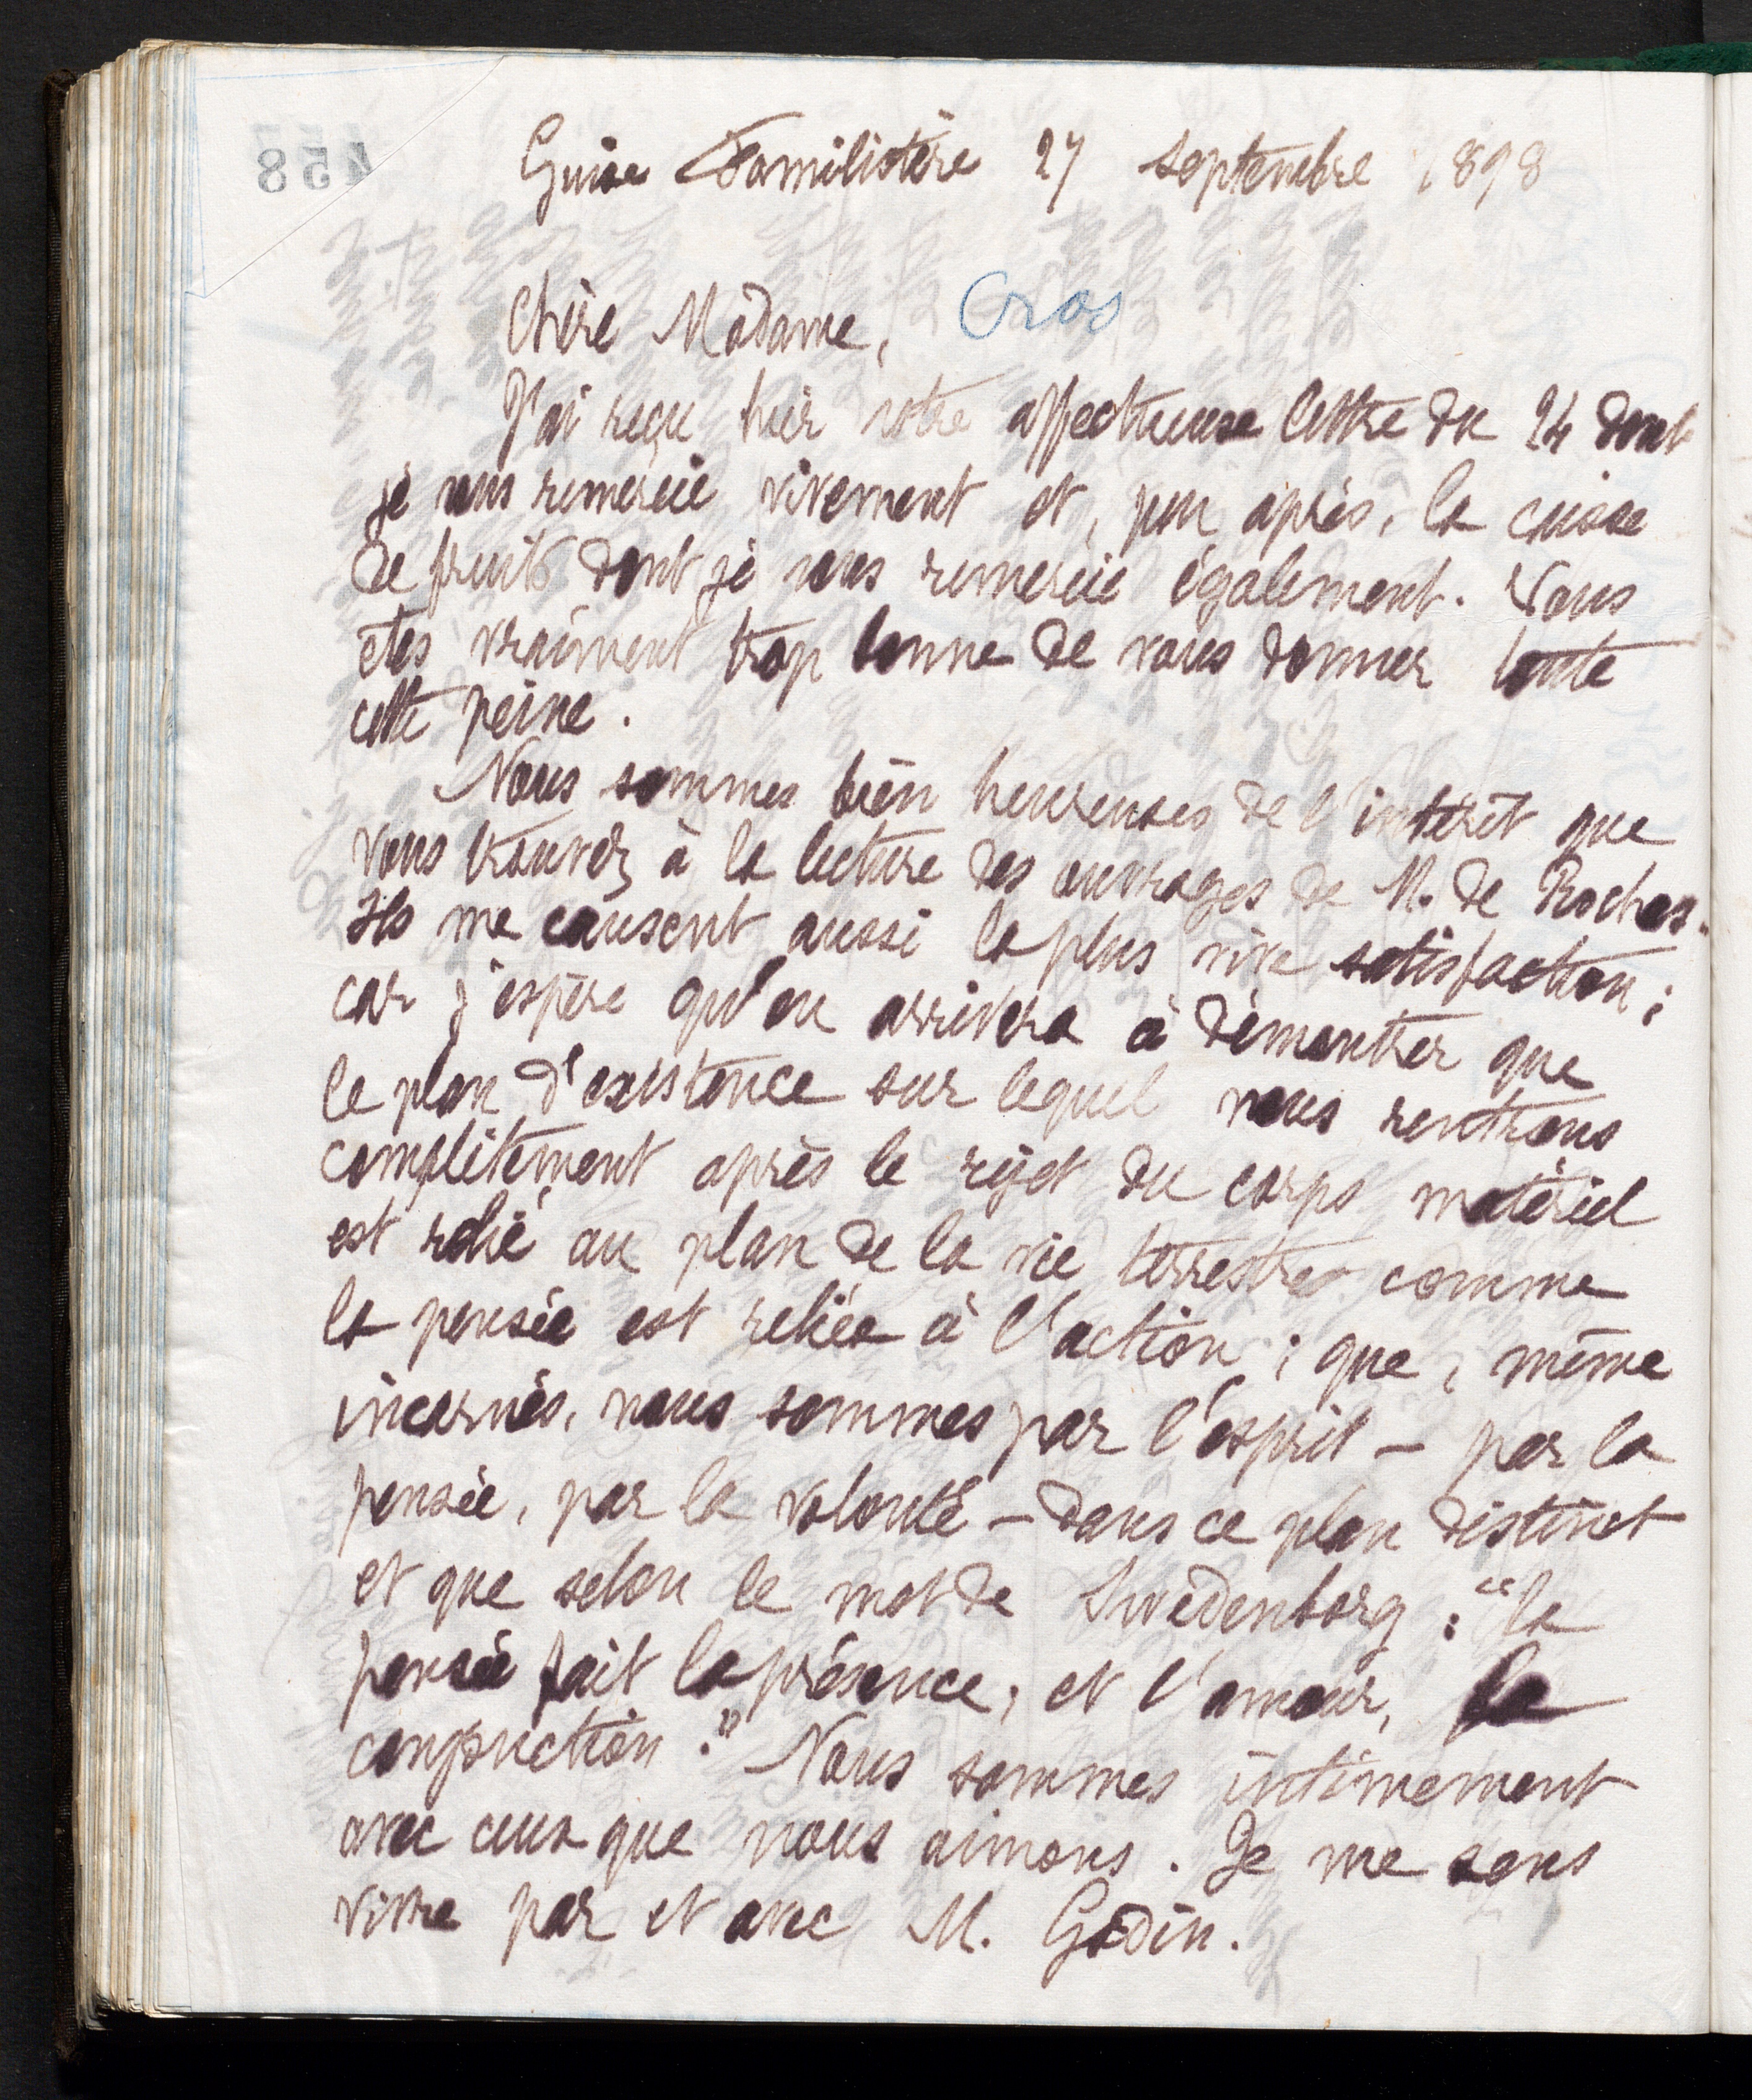 458
Guise Familistère 27 septembre 1898
Chère Madame, Cros
J'ai reçu hier votre affectueuse lettre du 24 dont
je vous remercie vivement et, peu après, la caisse
de fruits dont je vous remercie également. Vous
êtes vraiment trop bonne de vous donner toute
cette peine.
Nous sommes bien heureuses de l'intérêt que
vous trouvez à la lecture des ouvrages de M. de Rochas.
Ils me causent aussi la plus vive satisfaction ;
car j'espère qu'on arrivera à démontrer que
le plan d'existence sur lequel nous rentrons
complètement après le rejet du corps matériel
est relié au plan de la vie terrestre comme
la pensée est reliée à l'action ; que, même
incarnés, nous sommes par l'esprit – par la
pensée, par la volonté – dans ce plan distinct
et que selon le mot de Swedenborg : "la
pensée fait la présence, et l'amour, la
conjonction." Nous sommes intimement
avec ceux que nous aimons. Je me sens
vivre par et avec M. Godin.